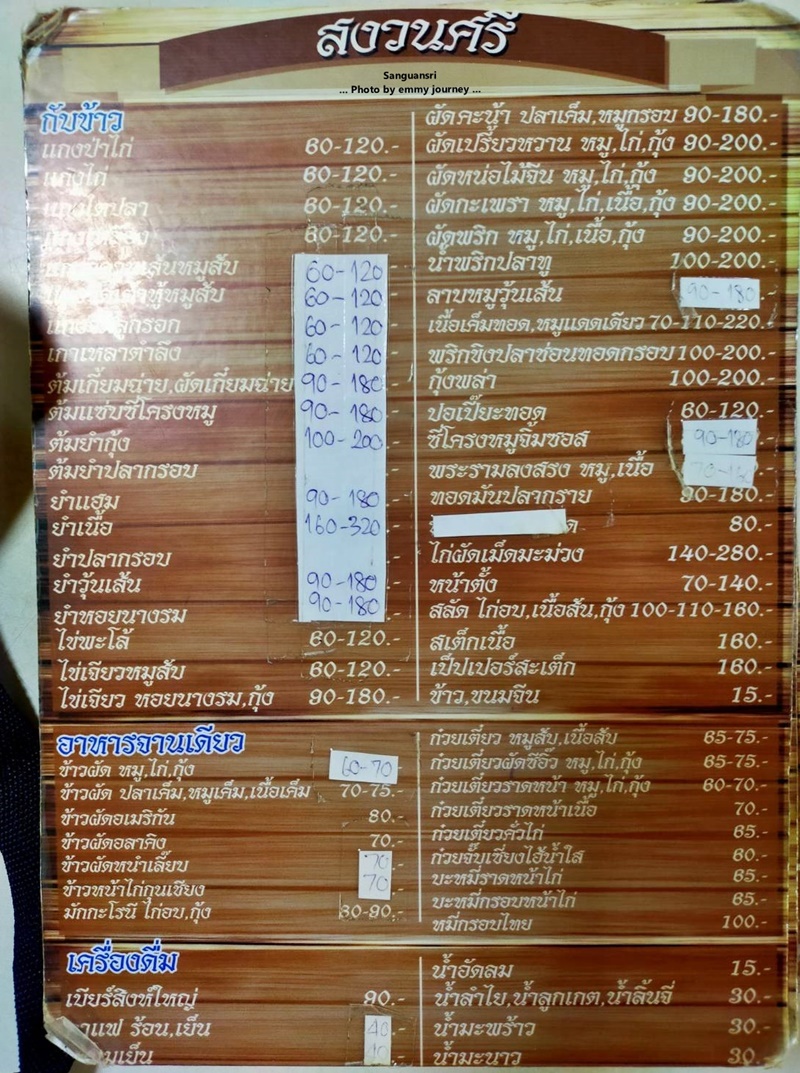 สงวนศรี
Sanguansri
... Photo by emmy journey ...
กับข้าว
แกงป่าไก่ 60-120.-
แกงไก่ 60-120.-
แกงไตปลา 60-120.-
60-120.-
60-120
60-120
60-120
เกาเหลาตำลึง 60-120
ต้มเกี้ยมฉ่าย,ผัดเกี้ยมฉ่าย 90-180
ต้มแซ่บซี่โครงหมู 90-180
ต้มยำกุ้ง 100-200
ต้มยำปลากรอบ
ยำแฮม 90-180
ยำเนื้อ 160-320
ยำปลากรอบ
ยำวุ้นเส้น 90-180
ยำหอยนางรม 90-180
ไข่พะโล้ 60-120.-
ไข่เจียวหมูสับ 60-120.-
ไข่เจียว หอยนางรม,กุ้ง 90-180.-
ผัดคะน้า ปลาเค็ม,หมูกรอบ 90-180.-
ผัดเปรี้ยวหวาน หมู,ไก่,กุ้ง 90-200.-
ผัดหน่อไม้จีน หมู,ไก่,กุ้ง 90-200.-
ผัดกะเพรา หมู,ไก่,เนื้อ,กุ้ง 90-200.-
ผัดพริก หมู,ไก่,เนื้อ,กุ้ง 90-200.-
น้ำพริกปลาทู 100-200.-
ลาบหมูวุ้นเส้น 90-180
เนื้อเค็มทอด,หมูแดดเดียว 70-110-220.-
พริกขิงปลาช่อนทอดกรอบ 100-200.-
กุ้งพล่า 100-200.-
ปอเปี๊ยะทอด 60-120.-
ซี่โครงหมูจิ้มซอส 90-180
พระรามลงสรง หมู,เนื้อ
ทอดมันปลากราย 90-180.-
80.-
ไก่ผัดเม็ดมะม่วง 140-280.-
หน้าตั้ง 70-140.-
สลัด ไก่อบ,เนื้อสัน,กุ้ง 100-110-160.-
สเต็กเนื้อ 160.-
เป็ปเปอร์สะเต็ก 160.-
ข้าว,ขนมจีน 15.-
อาหารจานเดียว
ข้าวผัด หมู,ไก่,กุ้ง 60-70
ข้าวผัด ปลาเค็ม,หมูเค็ม,เนื้อเค็ม 70-75.-
ข้าวผัดอเมริกัน 80.-
ข้าวผัดอลาคิง 70.-
ข้าวผัดหนำเลี้ยบ 70
ข้าวหน้าไก่กุนเชียง 70
มักกะโรนี ไก่อบ,กุ้ง 80-90.-
ก๋วยเตี๋ยว หมูสับ,เนื้อสับ 65-75.-
ก๋วยเตี๋ยวผัดซีอิ๊ว หมู,ไก่,กุ้ง 65-75.-
ก๋วยเตี๋ยวราดหน้า หมู,ไก่,กุ้ง 60-70.-
ก๋วยเตี๋ยวราดหน้าเนื้อ 70.-
ก๋วยเตี๋ยวคั่วไก่ 65.-
ก๋วยจั๊บเซี่ยงไฮ้น้ำใส 60.-
บะหมี่ราดหน้าไก่ 65.-
บะหมี่กรอบหน้าไก่ 65.-
หมี่กรอบไทย 100.-
เครื่องดื่ม
เบียร์สิงห์ใหญ่ 90.-
กาแฟ ร้อน,เย็น 40
นมเย็น 40
น้ำอัดลม 15.-
น้ำลำไย,น้ำลูกเกต,น้ำลิ้นจี่ 30.-
น้ำมะพร้าว 30.-
น้ำมะนาว 30.-